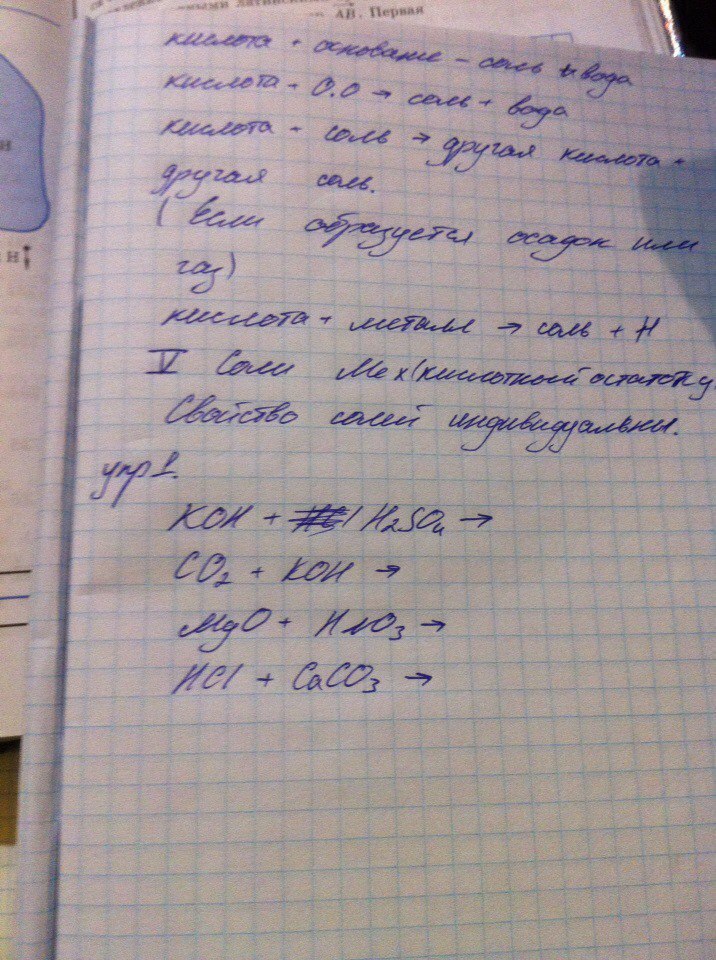 АВ. Первая
кислота + основание – соль + вода
кислота + О.О → соль + вода
кислота + соль → другая кислота +
другая соль.
(Если образуется осадок или
газ)
кислота + металл → соль + H
V Соли Меx(кислотный остаток)y
Свойство солей индивидуальны.
упр 1.
KOH + H2SO4 →
CO2 + KOH →
MgO + HNO3 →
HCl + CaCO3 →